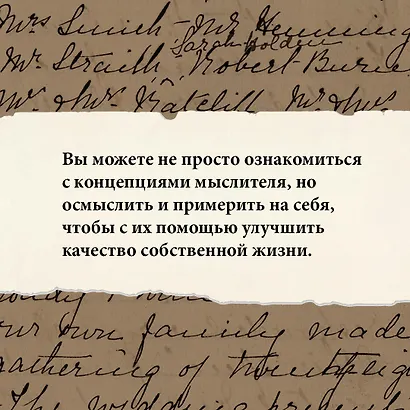 Mrs Smith - Mr Henning
Sarah Holden
Mr. Straith, Robert Burn
Mr. & Mrs Ratcliff Mr & Mrs
Вы можете не просто ознакомиться
с концепциями мыслителя, но
осмыслить и примерить на себя,
чтобы с их помощью улучшить
качество собственной жизни.
our own family made
gathering of
The wedding